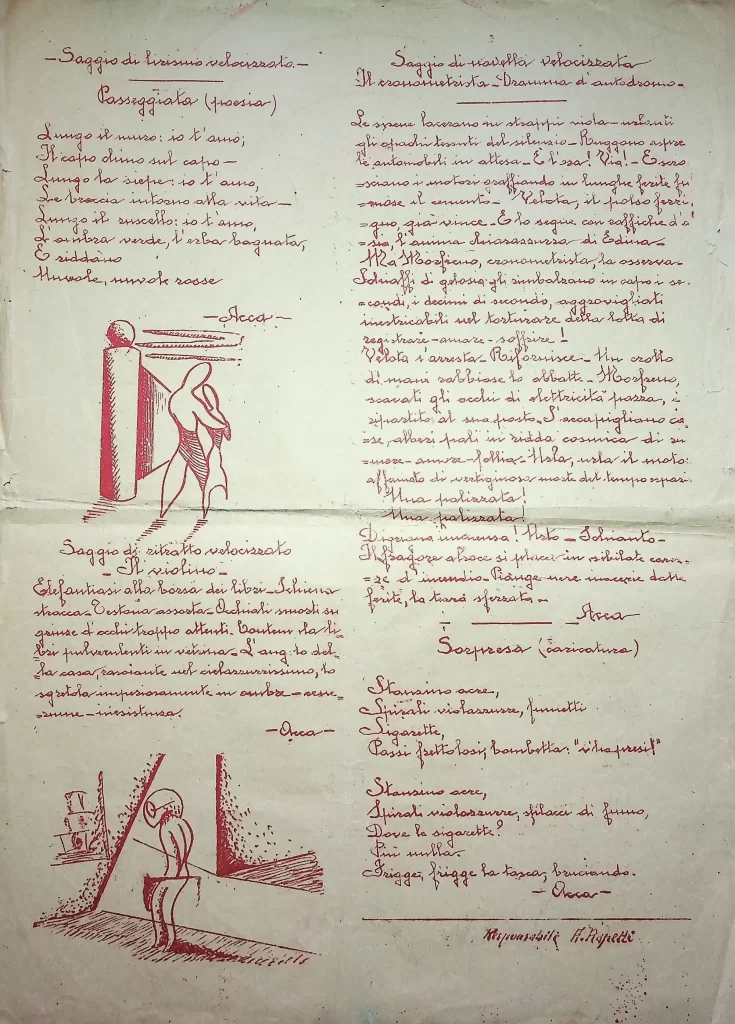 - Saggio di lirismo velocizzato -
Passeggiata (poesia)
Lungo il muro: io t'amo;
Il capo chino sul capo -
Lungo la siepe: io t'amo,
Le braccia intorno alla vita -
Lungo il ruscello: io t'amo,
L'ombra verde, l'erba bagnata,
E riddano
Nuvole, nuvole rosse
- Acca -
Saggio di ritratto velocizzato
- Il violino -
Elefantiasi alla borsa dei libri - Schiena
stracca - Testona assorta - Occhiali smorti su
grinze d'occhi troppo attenti. Contempla li=
bri pulverulenti in vetrina - L'angolo del=
la casa, ranciante nel cielazzurrissimo, lo
sgretola imperiosamente in ombre -
- inesistenza.
- Acca -
Saggio di novella velocizzata
Il cronometrista - Dramma d'autodromo -
Le sirene lacerano in strappi viola - urlanti
gli opachi tessuti del silenzio - Ruggono aspre
le automobili in attesa - È l'ora! Via! - E scro=
=sciano i motori graffiando in lunghe ferite fu=
=mose il cemento - Velota, il polso ferri=
=gno, già vince - E lo segue con raffiche d'a=
=sia, l'anima chiarazzurra di Edina -
Ma Morfreno, cronometrista, la osserva -
Schiaffi di gelosia gli rimbalzano in capo i se=
=condi, i decimi di secondo, aggrovigliati
inestricabili nel torturare della lotta di
registrare - amare - soffrire!
Velota s'arresta - Rifornisce - Un crollo
di mani rabbiose lo abbatte - Morfreno,
scavati gli occhi di elettricità pazza, è
ripartito al suo posto - S'accapigliano ca=
=se, alberi pali in ridda cosmica di ru=
=more - amore - follia - Urla, urla il moto:
affamato di vertiginosa morte del tempo spazi:
Una palizzata!
Una palizzata!
immensa! Urto - Schianto -
Il fragore atroce si placa in sibilate carez=
=ze d'incendio - Piange nere macerie dalle
ferite, la terra sferzata -
Acca
Sorpresa (caricatura)
Stanzino acre,
Spirali violazzurre, fumetti
Sigarette,
Passi frettolosi, bombetta: "v'ha presi!"
Stanzino acre,
Spirali violazzurre, sfilacci di fumo,
Dove le sigarette?
Più nulla.
Frigge, frigge la tasca, bruciando.
- Acca -
Responsabile A. Rapetti